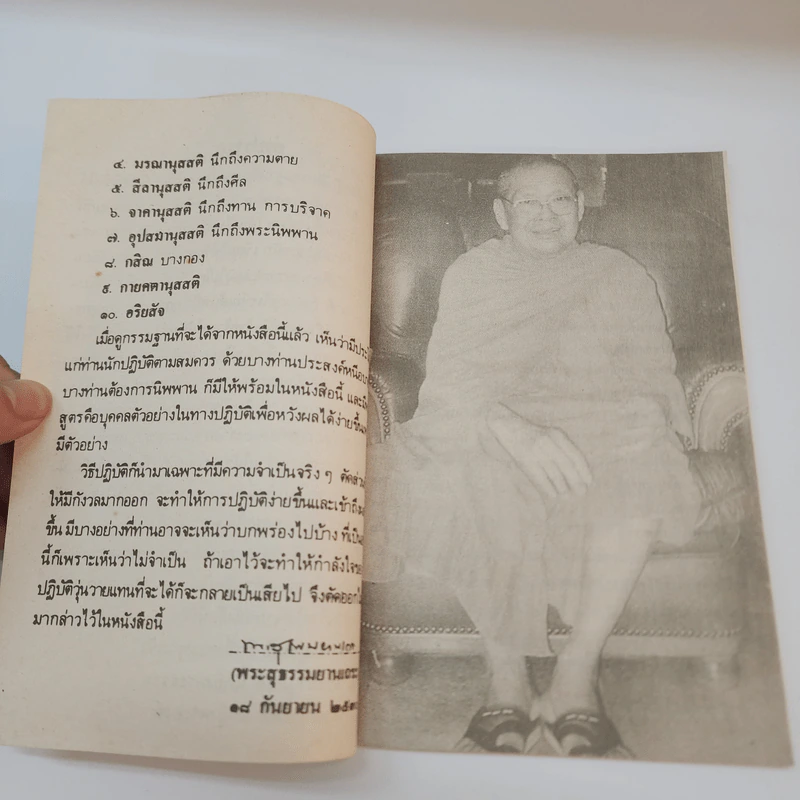 ๔. มรณานุสสติ นึกถึงความตาย
๕. สีลานุสสติ นึกถึงศีล
๖. จาคานุสสติ นึกถึงทาน การบริจาค
๗. อุปสมานุสสติ นึกถึงพระนิพพาน
๘. กสิณ บางกอง
๙. กายคตานุสสติ
๑๐. อริยสัจ
เมื่อดูกรรมฐานที่จะได้จากหนังสือนี้แล้ว เห็นว่ามีประ
แก่ท่านนักปฏิบัติตามสมควร ด้วยบางท่านประสงค์หนีอบ
บางท่านต้องการนิพพาน ก็มีให้พร้อมในหนังสือนี้ และมี
สูตรคือบุคคลตัวอย่างในทางปฏิบัติเพื่อหวังผลได้ง่ายขึ้น
มีตัวอย่าง
วิธีปฏิบัติก็นำมาเฉพาะที่มีความจำเป็นจริง ๆ ตัดส่วน
ให้มีกังวลมากออก จะทำให้การปฏิบัติง่ายขึ้นและเข้าถึง
ขึ้น มีบางอย่างที่ท่านอาจจะเห็นว่าบกพร่องไปบ้าง ที่เป็น
นี้ก็เพราะเห็นว่าไม่จำเป็น ถ้าเอาไว้จะทำให้กำลังใจ
ปฏิบัติวุ่นวายแทนที่จะได้ก็จะกลายเป็นเสียไป จึงตัดออก
มากล่าวไว้ในหนังสือนี้
(พระสุธรรมยานเถระ
๑๘ กันยายน ๒๕